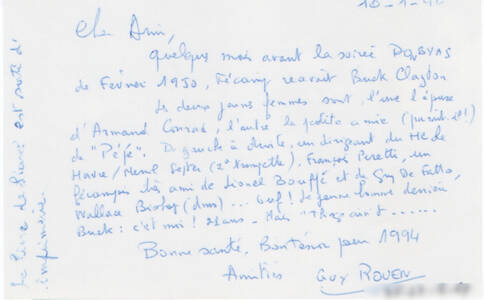 10-1-94
Cher Ami,
Quelques mois avant la soirée DON BYAS
de Février 1950, Fécamp recevait Buck Clayton
Les deux jeunes femmes sont, l'une l'épouse
d'Armand Conrad, l'autre la petite amie (paraît-il!)
de "Pépé". De gauche à droite, un dirigeant du HC de
Havre / Merril (2e trompette), François Peretti, un
fécampois très ami de Lionel Bouffé et de Guy De Fatto,
Wallace Bishop (drm) ... Ouf! Le jeune homme derrière
Buck: c'est moi! 21 ans - Mais "Things ain't ......
Bonne santé, Bon Trésor pour 1994
Amitiés GUY ROUEN
Le Livre de Pierre est sorti d'
imprimerie.